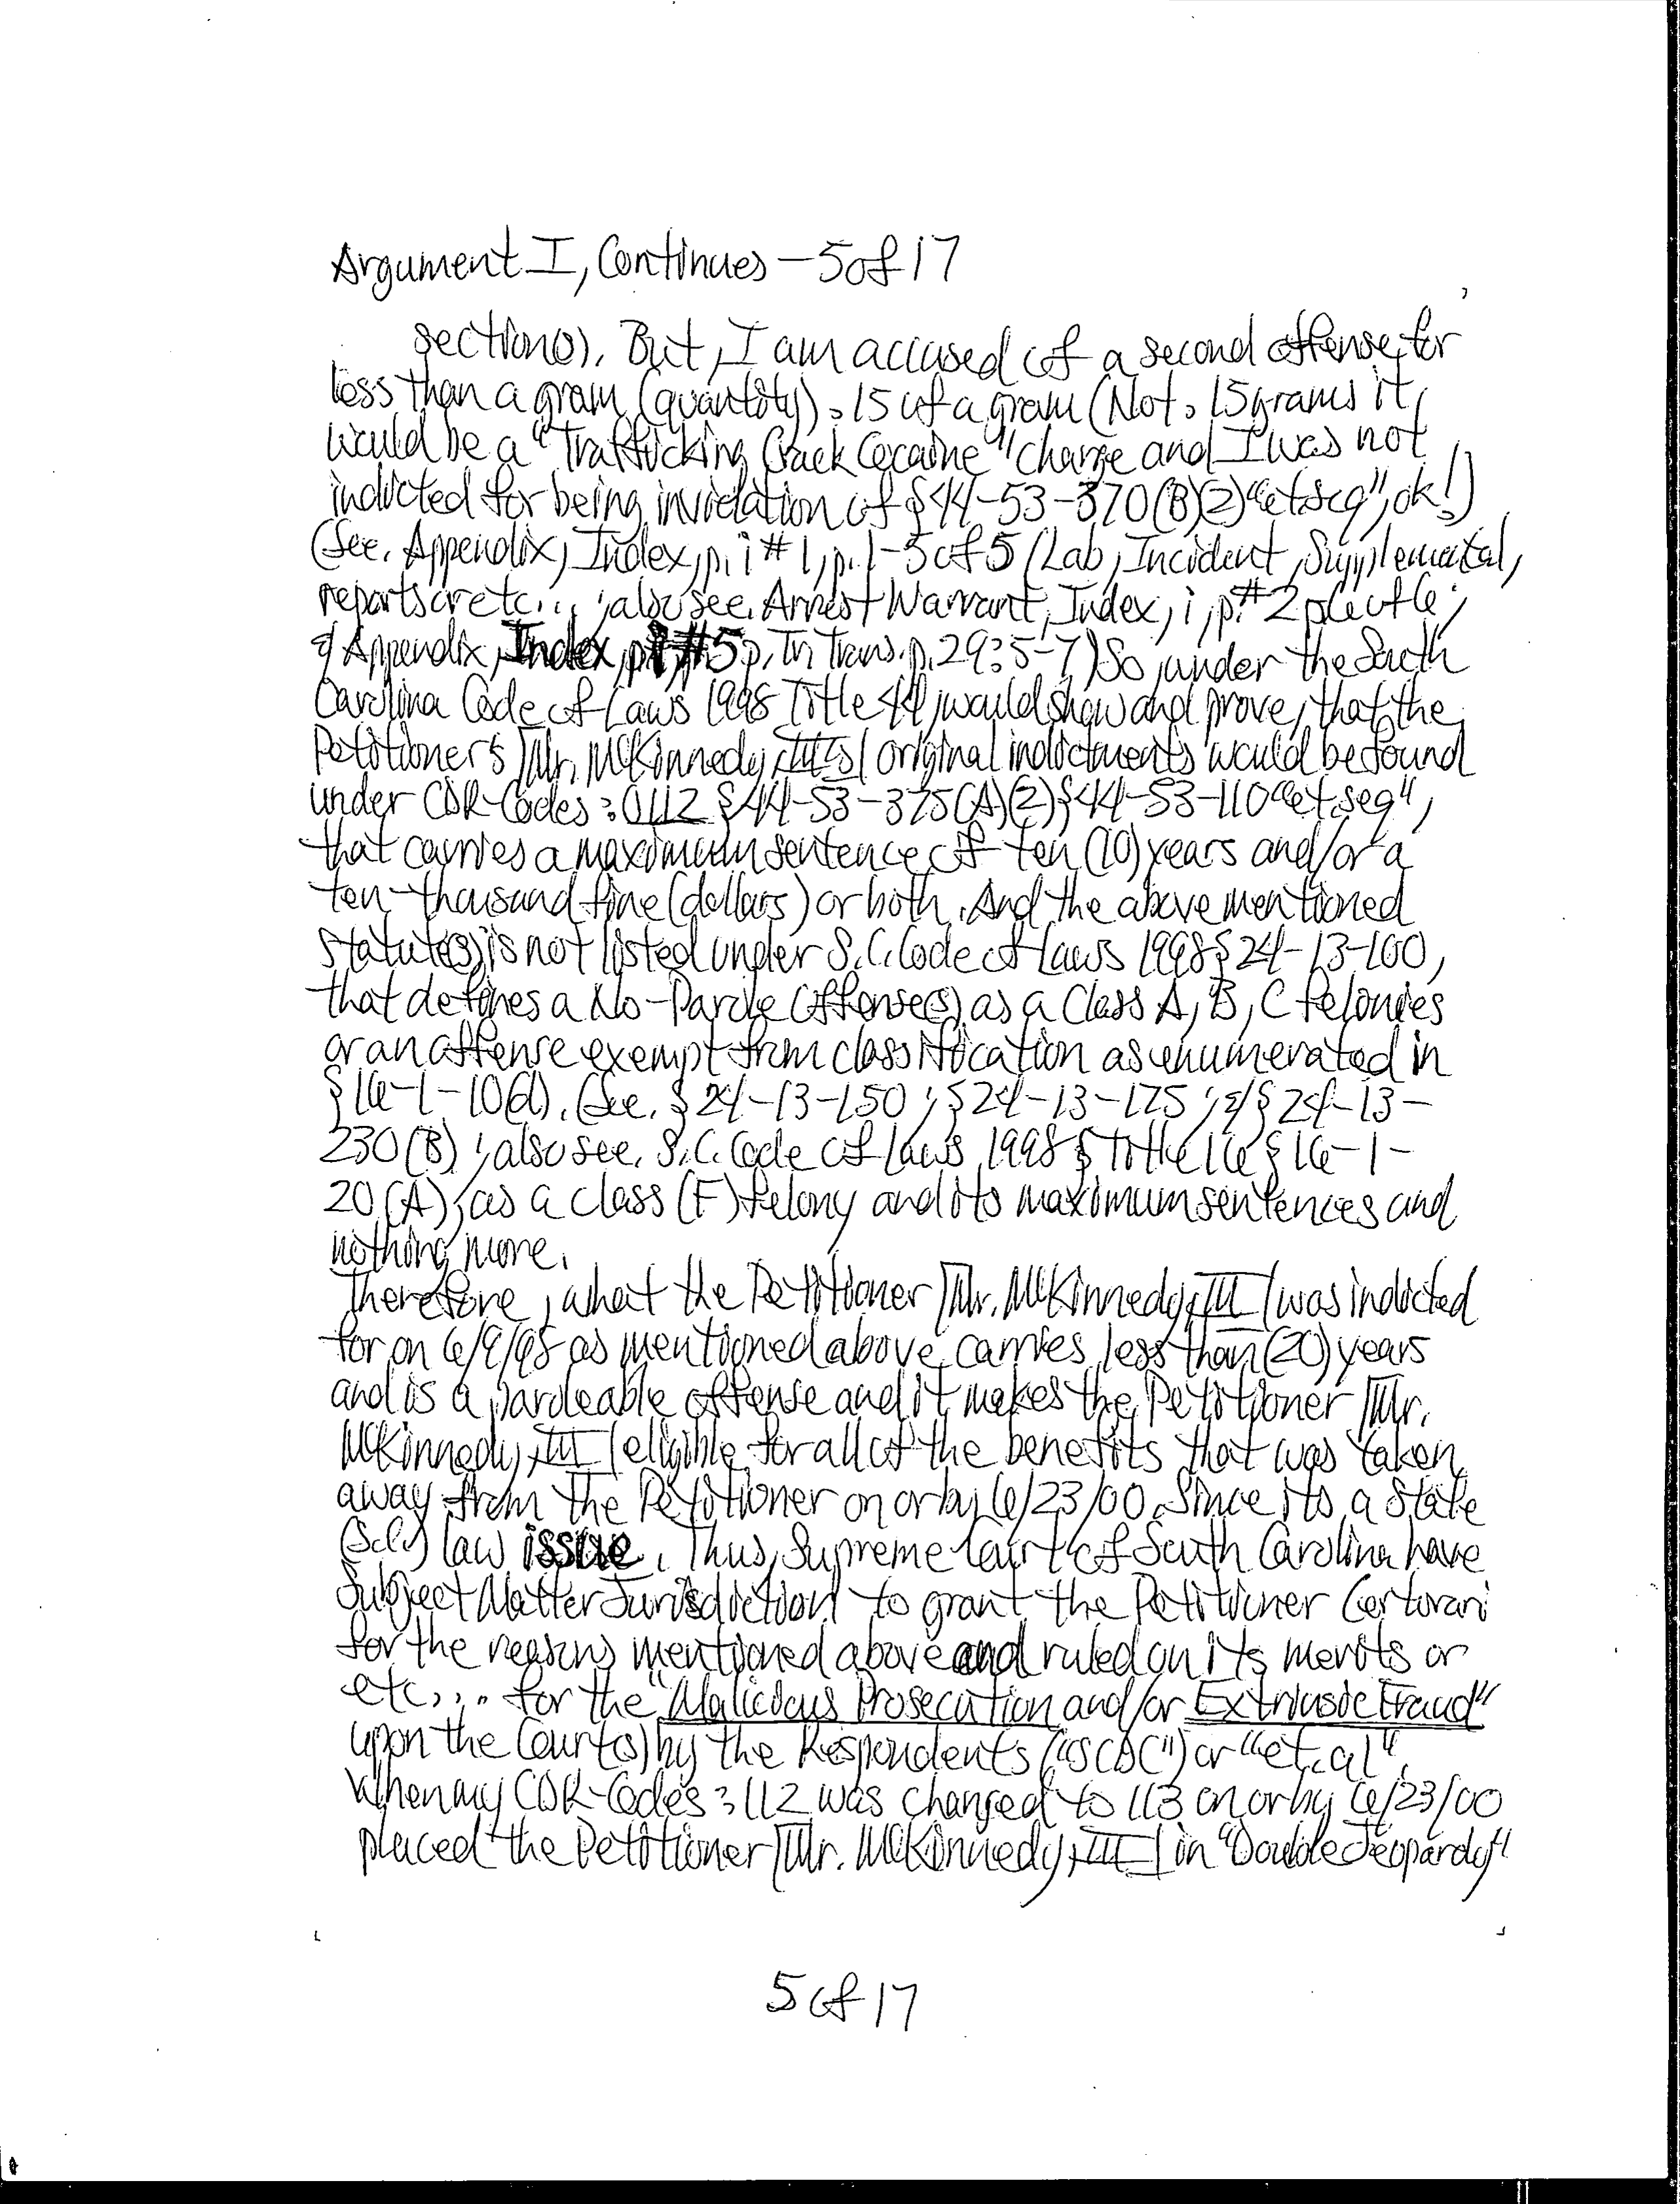 Argument I, Continues – 5 of 17
section(s). But, I am accused of a second offense, for
less than a gram (quantity) .15 of a gram (Not. 15 grams it,
would be a "Trafficking Crack Cocaine" charge and I was not
indicted for being in violation of § 44-53-370(B)(2) "et seq", ok!)
(See. Appendix, Index, p. i #1, p. 1-5 of 5 (Lab, Incident, Supplemental,
reports or etc... ; also see. Arrest Warrant, Index, i, p. #2
& Appendix, Index, #5 p. Tr. Trans. p. 29:5-7) So, under the South
Carolina Code of Laws 1998 Title 44, would show and prove, that the
Petitioner's [Mr. McKinnedy, III's] original indictments would be found
under CDR-Codes: 0112 § 44-53-375(A)(2) § 44-53-110 "et seq",
that carries a maximum sentence of ten (10) years and/or a
ten-thousand fine (dollars) or both. And the above mentioned
statute(s) is not listed under S.C. Code of Laws 1998 § 24-13-100,
that defines a No-Parole Offense(s) as a Class A, B, C felonies
or an offense exempt from classification as enumerated in
§ 16-1-10(d). (See. § 24-13-150 ; § 24-13-175 ; & § 24-13-
230(B) ; also see. S.C. Code of Laws 1998 § Title 16 § 16-1-
20(A), as a class (F) felony and its maximum sentences and
nothing more.
Therefore, what the Petitioner [Mr. McKinnedy, III] was indicted
for on 6/9/98 as mentioned above carries less than (20) years
and is a paroleable offense and it makes the Petitioner [Mr.
McKinnedy, III] eligible for all of the benefits that was taken
away from the Petitioner on or by 6/23/00. Since its a State
(S.C.) law issue. Thus, Supreme Court of South Carolina have
Subject Matter Jurisdiction to grant the Petitioner Certorari
for the reasons mentioned above and ruled on its merits or
etc... for the "Malicious Prosecution and/or Extrinsic Fraud"
upon the Court(s) by the Respondents ("SCDC") or "et. al".
When my CDR-Codes: 112 was changed to 113 on or by 6/23/00
placed the Petitioner [Mr. McKinnedy, III] in "Double Jeopardy"
5 of 17